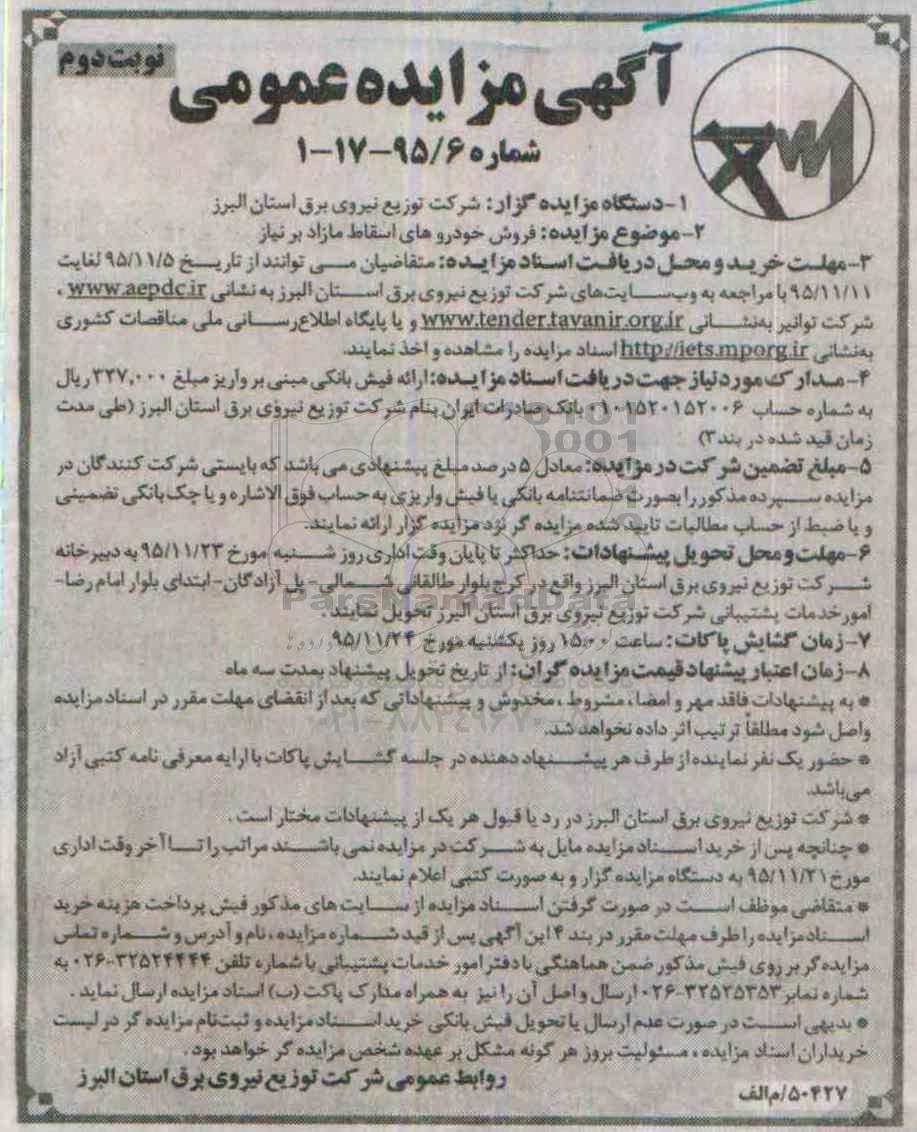 نوبت دوم
آگهی مزایده عمومی
شماره ۹۵/۶-۱۷-۱
۱-دستگاه مزایده گزار: شرکت توزیع نیروی برق استان البرز
۲-موضوع مزایده: فروش خودرو های اسقاط مازاد بر نیاز
۳-مهلت خرید و محل دریافت اسناد مزایده: متقاضیان می توانند از تاریخ ۹۵/۱۱/۵ لغایت
۹۵/۱۱/۱۱ با مراجعه به وب‌سایت‌های شرکت توزیع نیروی برق استان البرز به نشانی www.aepdc.ir ،
شرکت توانیر به‌نشانی www.tender.tavanir.org.ir و یا پایگاه اطلاع‌رسانی ملی مناقصات کشوری
به‌نشانی http://iets.mporg.ir اسناد مزایده را مشاهده و اخذ نمایند.
۴-مدارک مورد نیاز جهت دریافت اسناد مزایده: ارائه فیش بانکی مبنی بر واریز مبلغ ۳۲۷,۰۰۰ ریال
به شماره حساب ۰۱۰۱۵۲۰۱۵۲۰۰۶ بانک صادرات ایران بنام شرکت توزیع نیروی برق استان البرز (طی مدت
زمان قید شده در بند۳)
۵-مبلغ تضمین شرکت در مزایده: معادل ۵ درصد مبلغ پیشنهادی می باشد که بایستی شرکت کنندگان در
مزایده سپرده مذکور را بصورت ضمانتنامه بانکی یا فیش واریزی به حساب فوق الاشاره و یا چک بانکی تضمینی
و یا ضبط از حساب مطالبات تایید شده مزایده گر نزد مزایده گزار ارائه نمایند.
۶-مهلت و محل تحویل پیشنهادات: حداکثر تا پایان وقت اداری روز شنبه مورخ ۹۵/۱۱/۲۳ به دبیرخانه
شرکت توزیع نیروی برق استان البرز واقع در کرج بلوار طالقانی شمالی- پل آزادگان- ابتدای بلوار امام رضا-
امور خدمات پشتیبانی شرکت توزیع نیروی برق استان البرز تحویل نمایند .
ParsNamadData
۷-زمان گشایش پاکات: ساعت ۱۵:۰۰ روز یکشنبه مورخ ۹۵/۱۱/۲۴
۸-زمان اعتبار پیشنهاد قیمت مزایده گران: از تاریخ تحویل پیشنهاد بمدت سه ماه
* به پیشنهادات فاقد مهر و امضا، مشروط ، مخدوش و پیشنهاداتی که بعد از انقضای مهلت مقرر در اسناد مزایده
واصل شود مطلقاً ترتیب اثر داده نخواهد شد.
* حضور یک نفر نماینده از طرف هر پیشنهاد دهنده در جلسه گشایش پاکات با ارایه معرفی نامه کتبی آزاد
می‌باشد.
* شرکت توزیع نیروی برق استان البرز در رد یا قبول هر یک از پیشنهادات مختار است .
* چنانچه پس از خرید اسناد مزایده مایل به شرکت در مزایده نمی باشند مراتب را تا آخر وقت اداری
مورخ ۹۵/۱۱/۲۱ به دستگاه مزایده گزار و به صورت کتبی اعلام نمایند.
* متقاضی موظف است در صورت گرفتن اسناد مزایده از سایت های مذکور فیش پرداخت هزینه خرید
اسناد مزایده را ظرف مهلت مقرر در بند ۴ این آگهی پس از قید شماره مزایده ، نام و آدرس و شماره تماس
مزایده گر بر روی فیش مذکور ضمن هماهنگی با دفتر امور خدمات پشتیبانی با شماره تلفن ۳۲۵۲۴۴۴۴-۰۲۶ به
شماره نمابر ۳۲۵۲۵۳۵۳-۰۲۶ ارسال و اصل آن را نیز به همراه مدارک پاکت (ب) اسناد مزایده ارسال نماید .
* بدیهی است در صورت عدم ارسال یا تحویل فیش بانکی خرید اسناد مزایده و ثبت‌نام مزایده گر در لیست
خریداران اسناد مزایده ، مسئولیت بروز هر گونه مشکل بر عهده شخص مزایده گر خواهد بود .
روابط عمومی شرکت توزیع نیروی برق استان البرز
۵۰۴۲۷/م‌الف